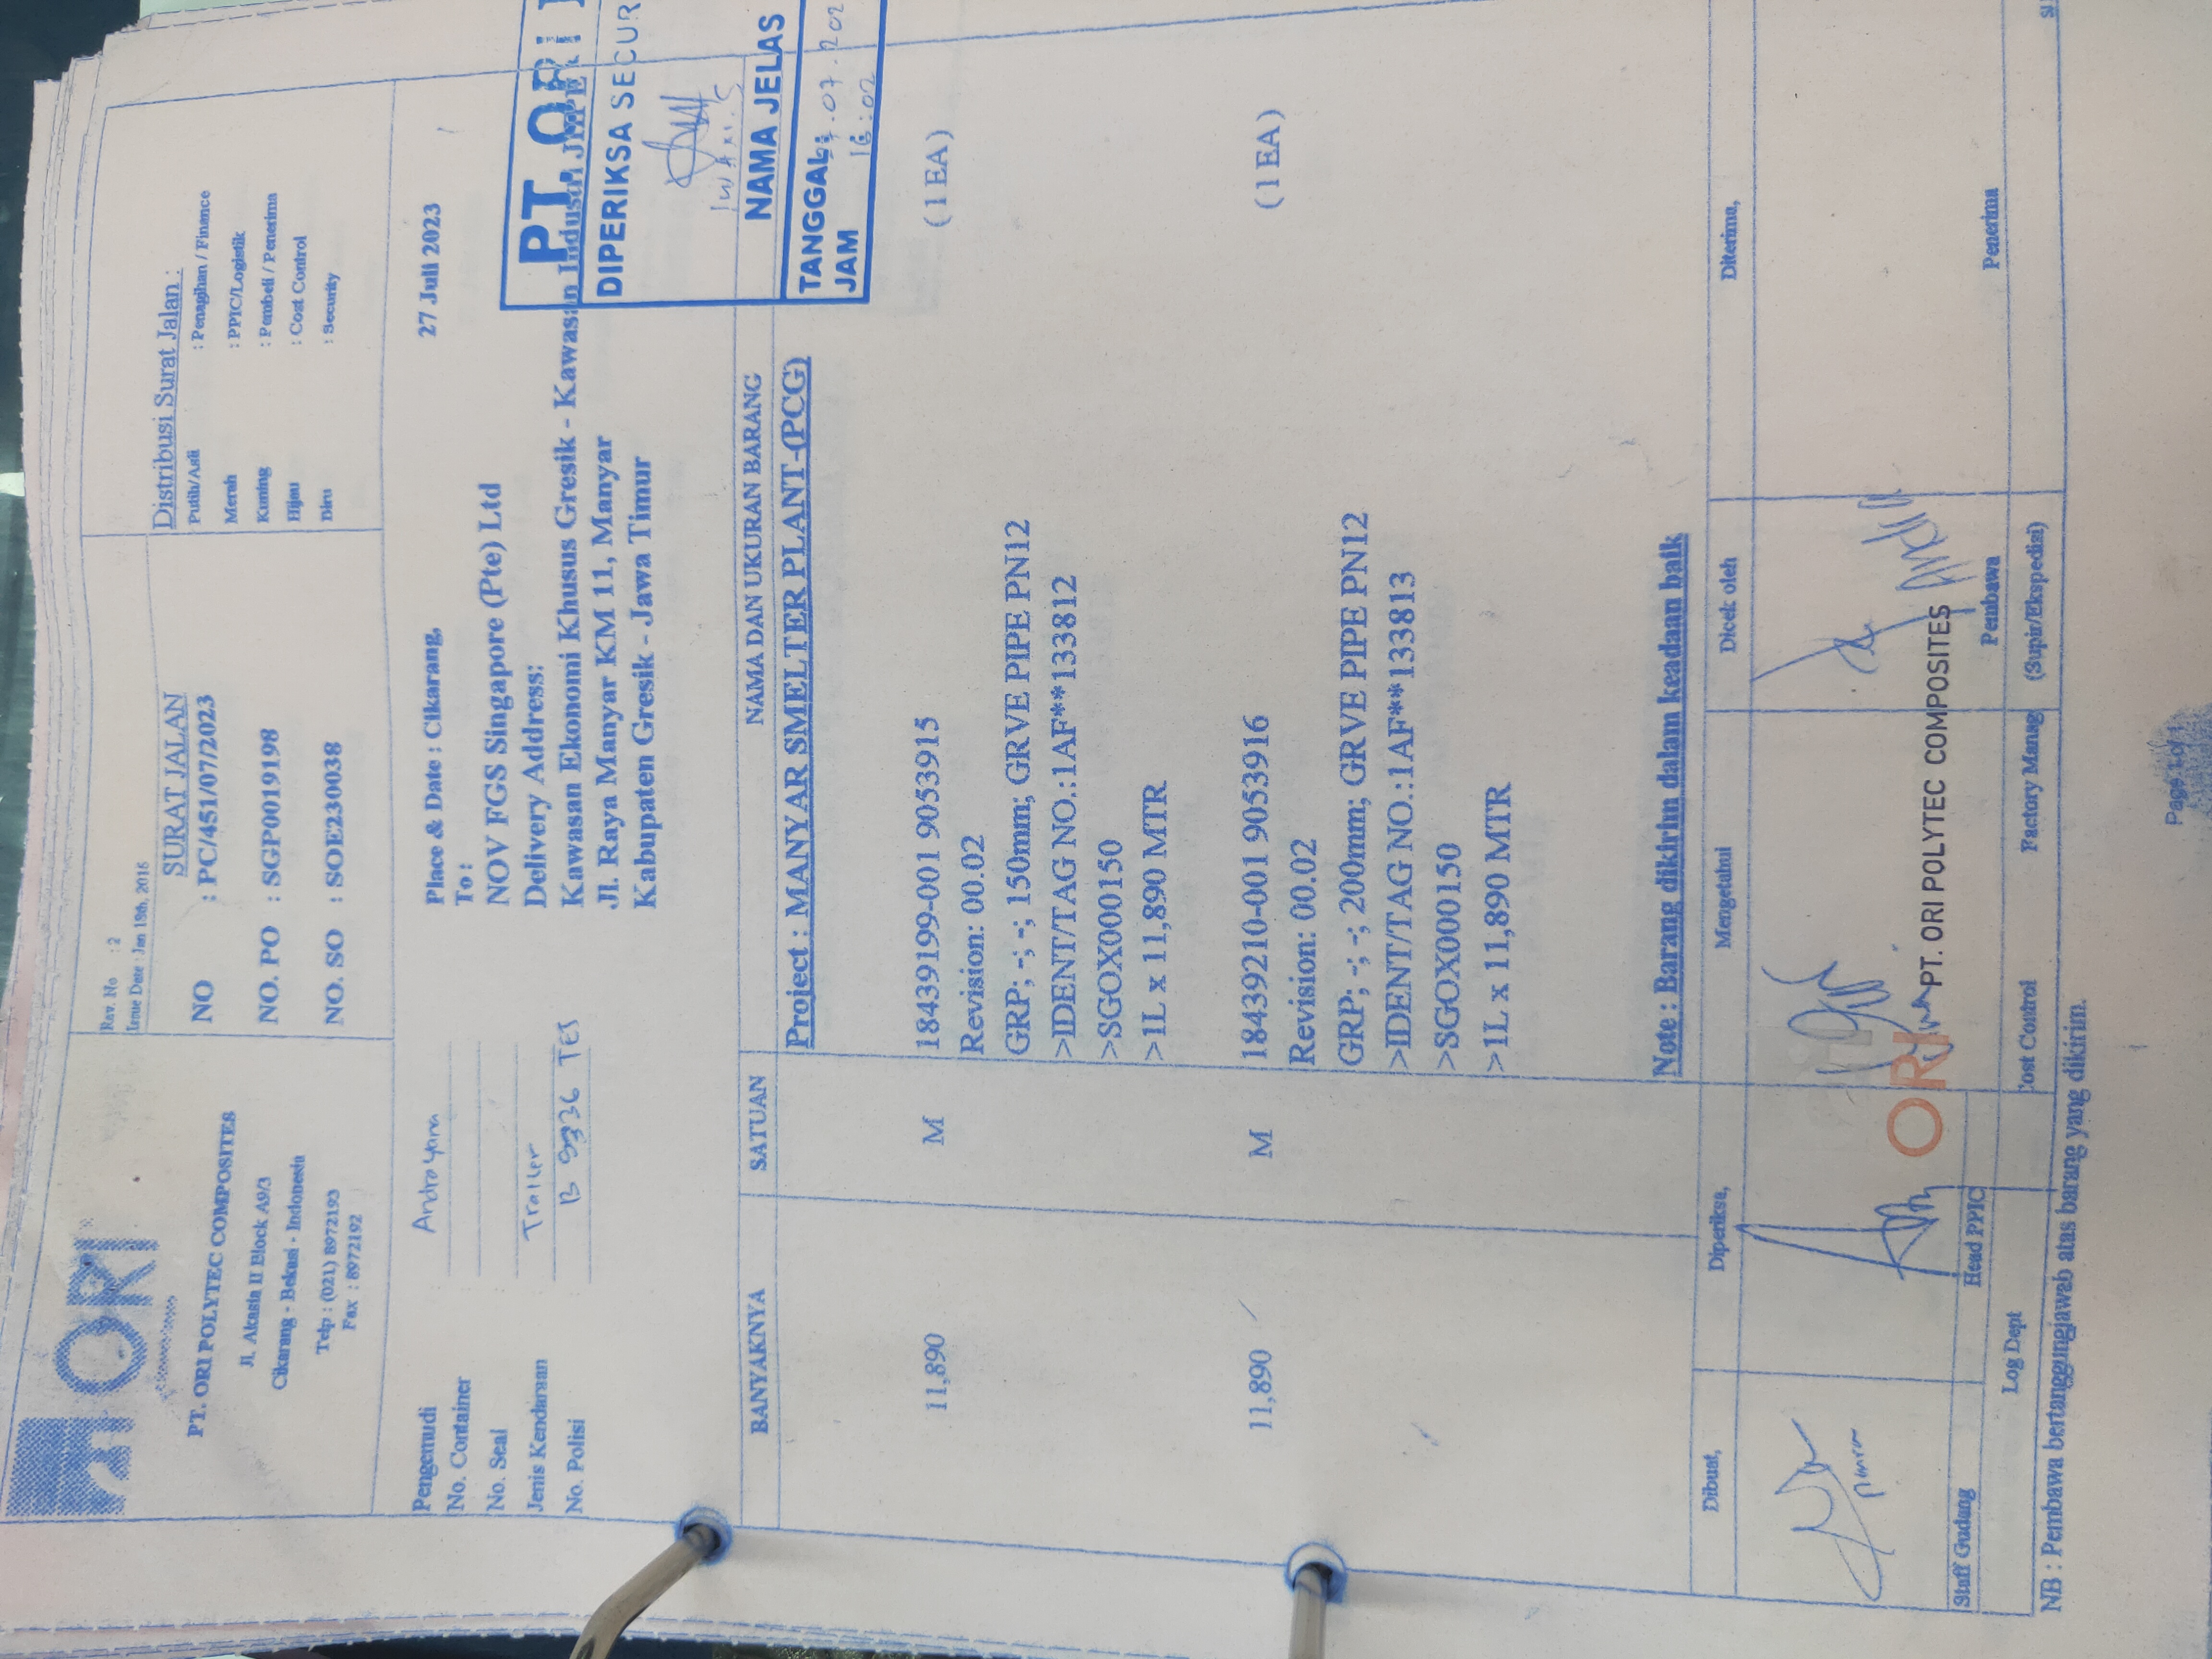 ORI
PT. ORI POLYTEC COMPOSITES
Jl. Akasia II Block A9/3
Cikarang - Bekasi - Indonesia
Telp : (021) 8972193
Fax : 8972192
Rev. No : 2
Issue Date : Jan 18th, 2016
SURAT JALAN
NO : PC/451/07/2023
NO. PO : SGP0019198
NO. SO : SOE230038
Distribusi Surat Jalan :
Putih/Asli : Penagihan / Finance
Merah : PPIC/Logistik
Kuning : Pembeli / Penerima
Hijau : Cost Control
Biru : Security
Pengemudi
No. Container
No. Seal
Jenis Kendaraan Trailer
No. Polisi
Place & Date : Cikarang, 27 Juli 2023
To :
NOV FGS Singapore (Pte) Ltd
Delivery Address:
Kawasan Ekonomi Khusus Gresik - Kawasan Industri JIIPE
Jl. Raya Manyar KM 11, Manyar
Kabupaten Gresik - Jawa Timur
PT. ORI
DIPERIKSA SECUR
NAMA JELAS
TANGGAL: .07.202
JAM 16:02
BANYAKNYA SATUAN NAMA DAN UKURAN BARANG
Project : MANYAR SMELTER PLANT-(PCG)
11,890 M 18439199-001 9053915 (1 EA)
Revision: 00.02
GRP; -; -; 150mm; GRVE PIPE PN12
>IDENT/TAG NO.:1AF**133812
>SGOX000150
>1L x 11,890 MTR
11,890 M 18439210-001 9053916 (1 EA)
Revision: 00.02
GRP; -; -; 200mm; GRVE PIPE PN12
>IDENT/TAG NO.:1AF**133813
>SGOX000150
>1L x 11,890 MTR
Note : Barang dikirim dalam keadaan baik
Dibuat, Diperiksa, Mengetahui Dicek oleh Diterima,
ORI PT. ORI POLYTEC COMPOSITES
Staff Gudang Head PPIC Pembawa Penerima
Log Dept Cost Control Factory Manag (Supir/Ekspedisi)
NB : Pembawa bertanggungjawab atas barang yang dikirim.
Page 1 of 1